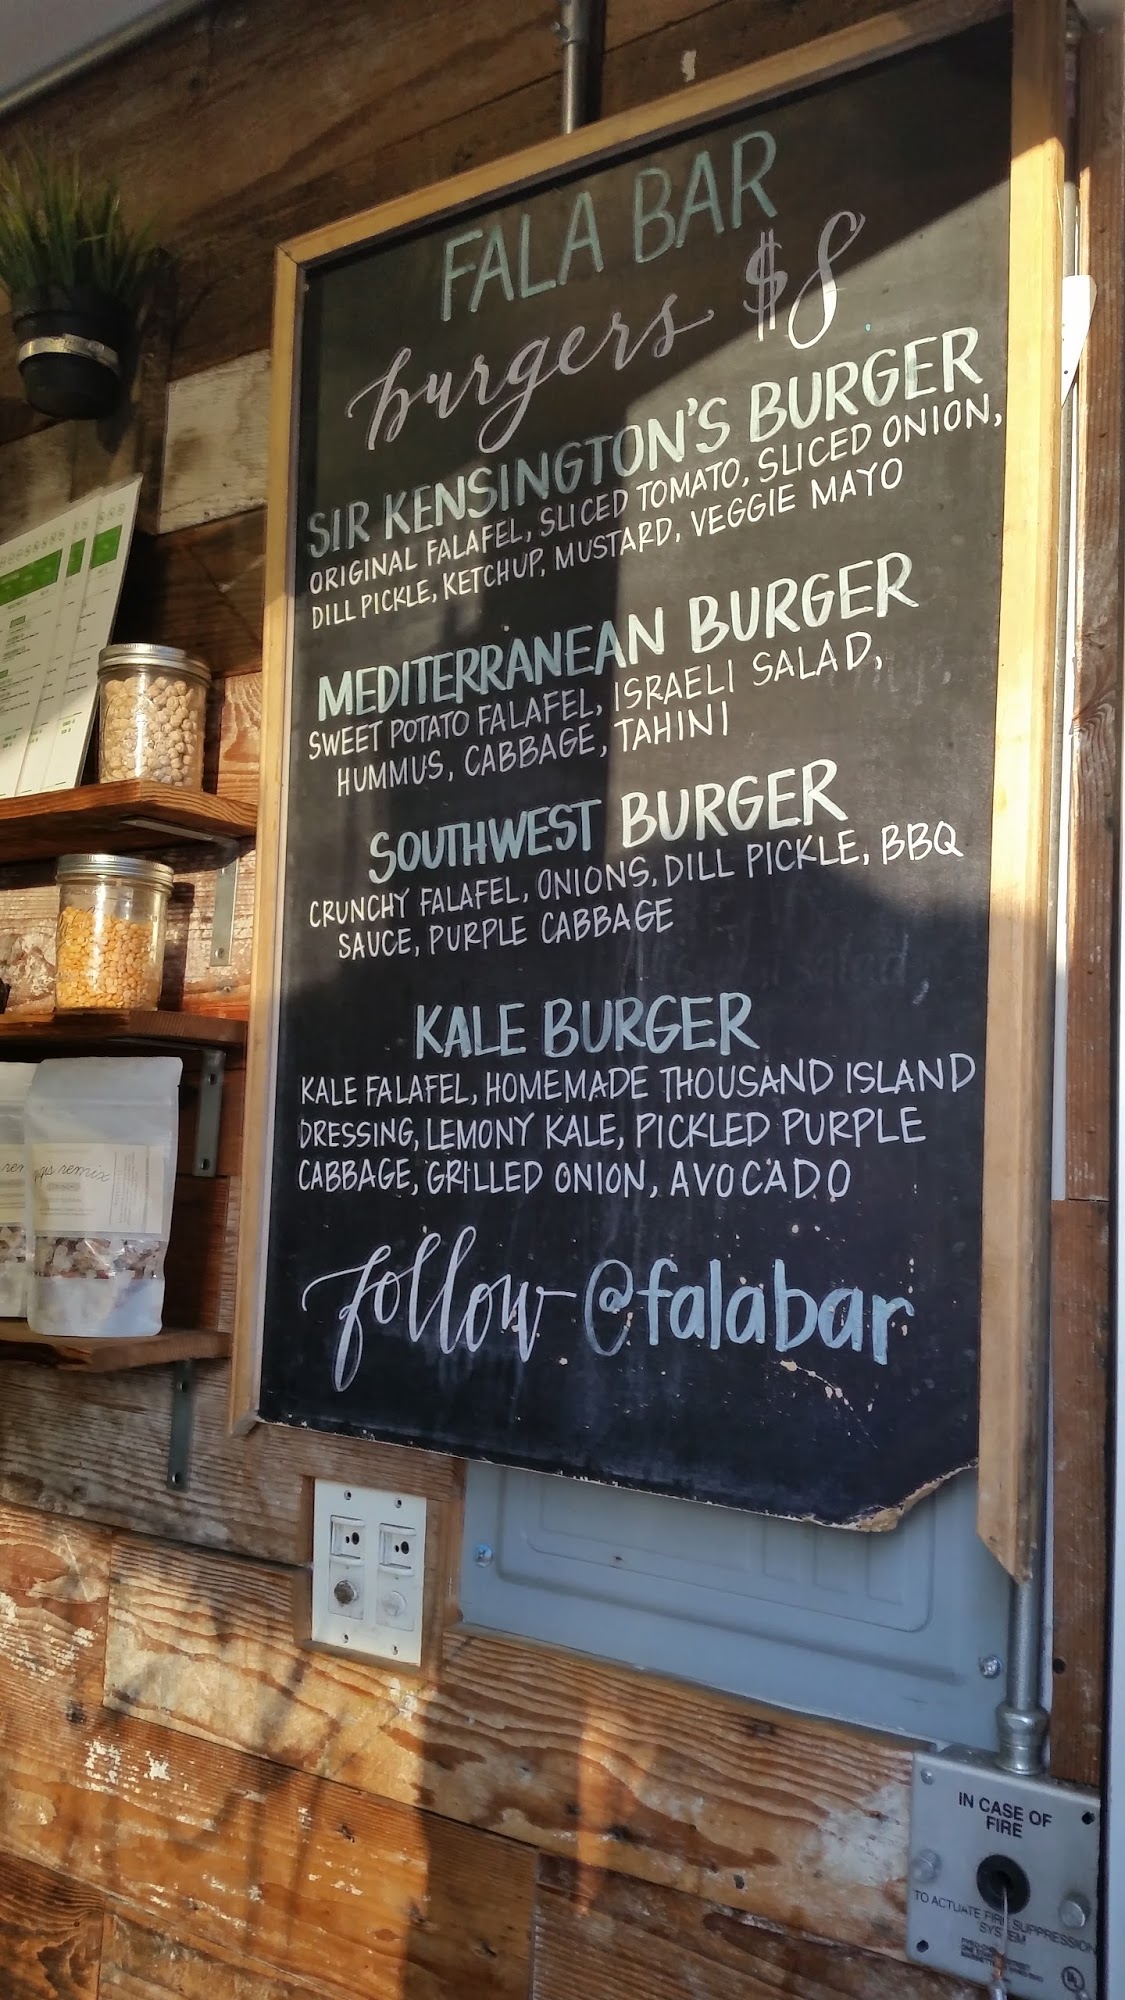 FALA BAR
burgers $8
SIR KENSINGTON'S BURGER
ORIGINAL FALAFEL, SLICED TOMATO, SLICED ONION,
DILL PICKLE, KETCHUP, MUSTARD, VEGGIE MAYO
MEDITERRANEAN BURGER
SWEET POTATO FALAFEL, ISRAELI SALAD,
HUMMUS, CABBAGE, TAHINI
SOUTHWEST BURGER
CRUNCHY FALAFEL, ONIONS, DILL PICKLE, BBQ
SAUCE, PURPLE CABBAGE
KALE BURGER
KALE FALAFEL, HOMEMADE THOUSAND ISLAND
DRESSING, LEMONY KALE, PICKLED PURPLE
CABBAGE, GRILLED ONION, AVOCADO
follow @falabar
remix
IN CASE OF
FIRE
TO ACTUATE FIRE SUPPRESSION
SYSTEM